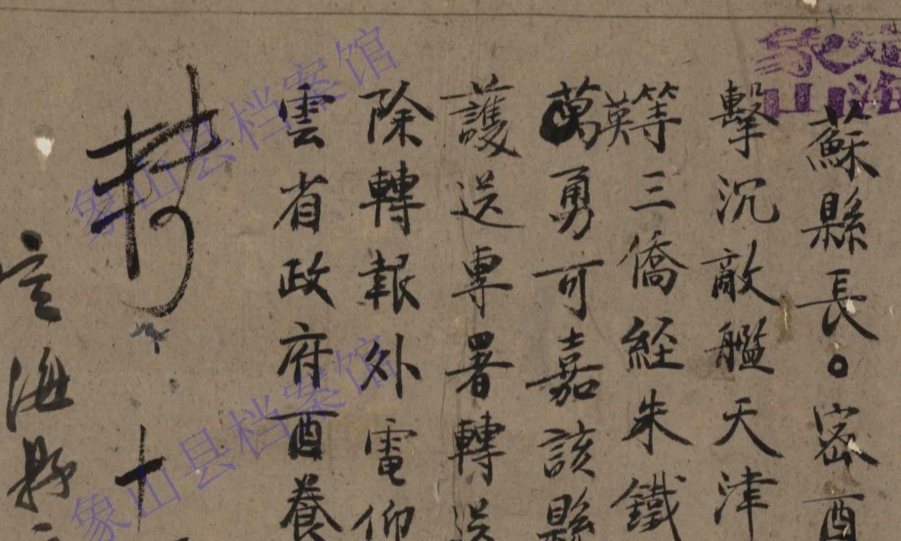 蘇縣長。密酉
擊沉敵艦天津
等三僑經朱鐵
英
萬勇可嘉該縣
護送專署轉送
除轉報外電仰
雲省政府酉養
十
海縣
象山县档案馆
象山县档案馆